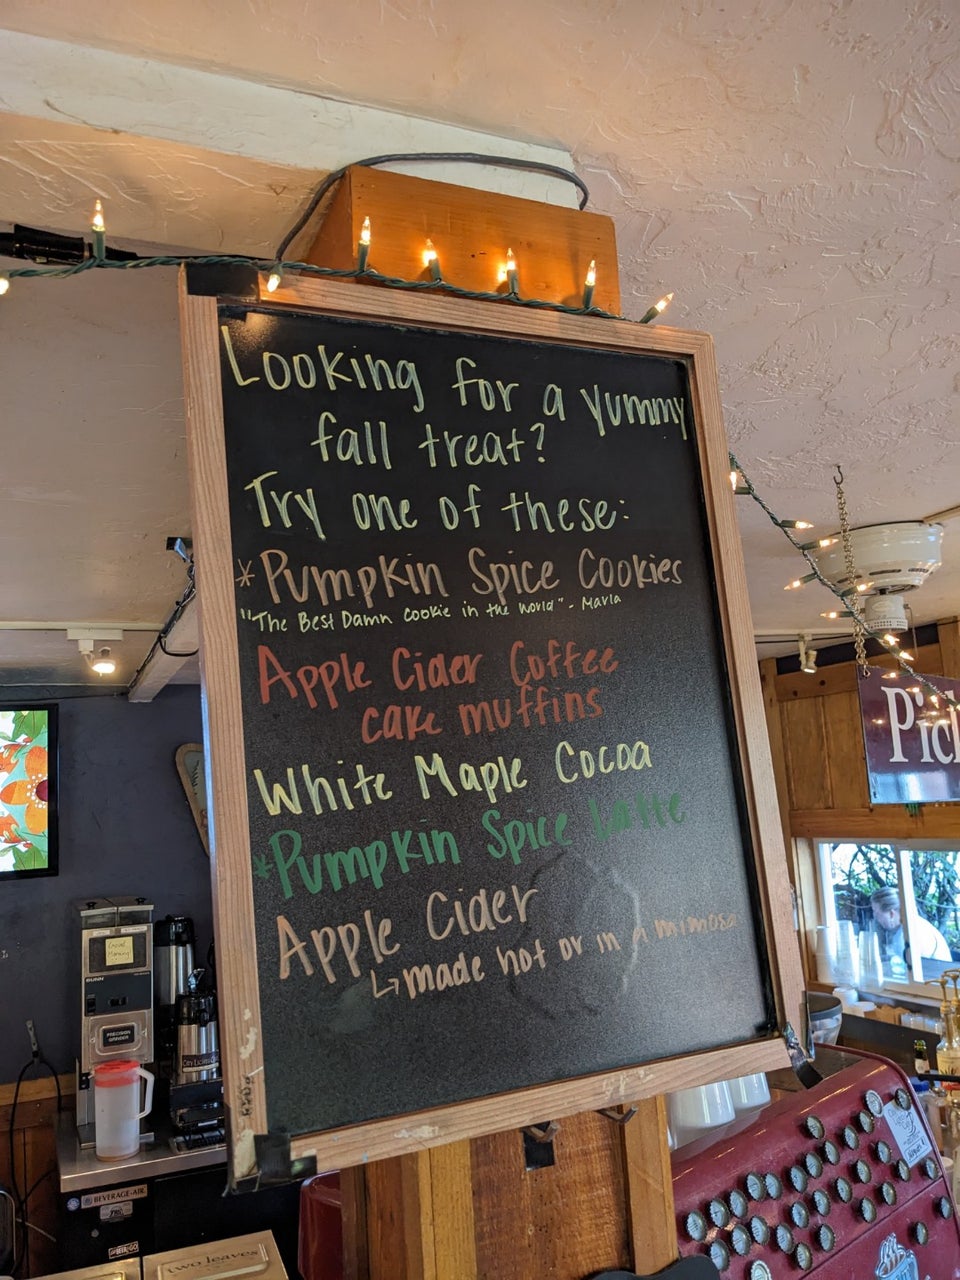 Looking for a yummy
fall treat?
Try one of these:
*Pumpkin Spice Cookies
"The Best Damn Cookie in the World" - Marla
Apple Cider Coffee
cake muffins
White Maple Cocoa
*Pumpkin Spice Latte
Apple Cider
↳made hot or in a mimosa
Pic
BUNN
PRECISION
GRINDER
BEVERAGE-AIR
two leaves